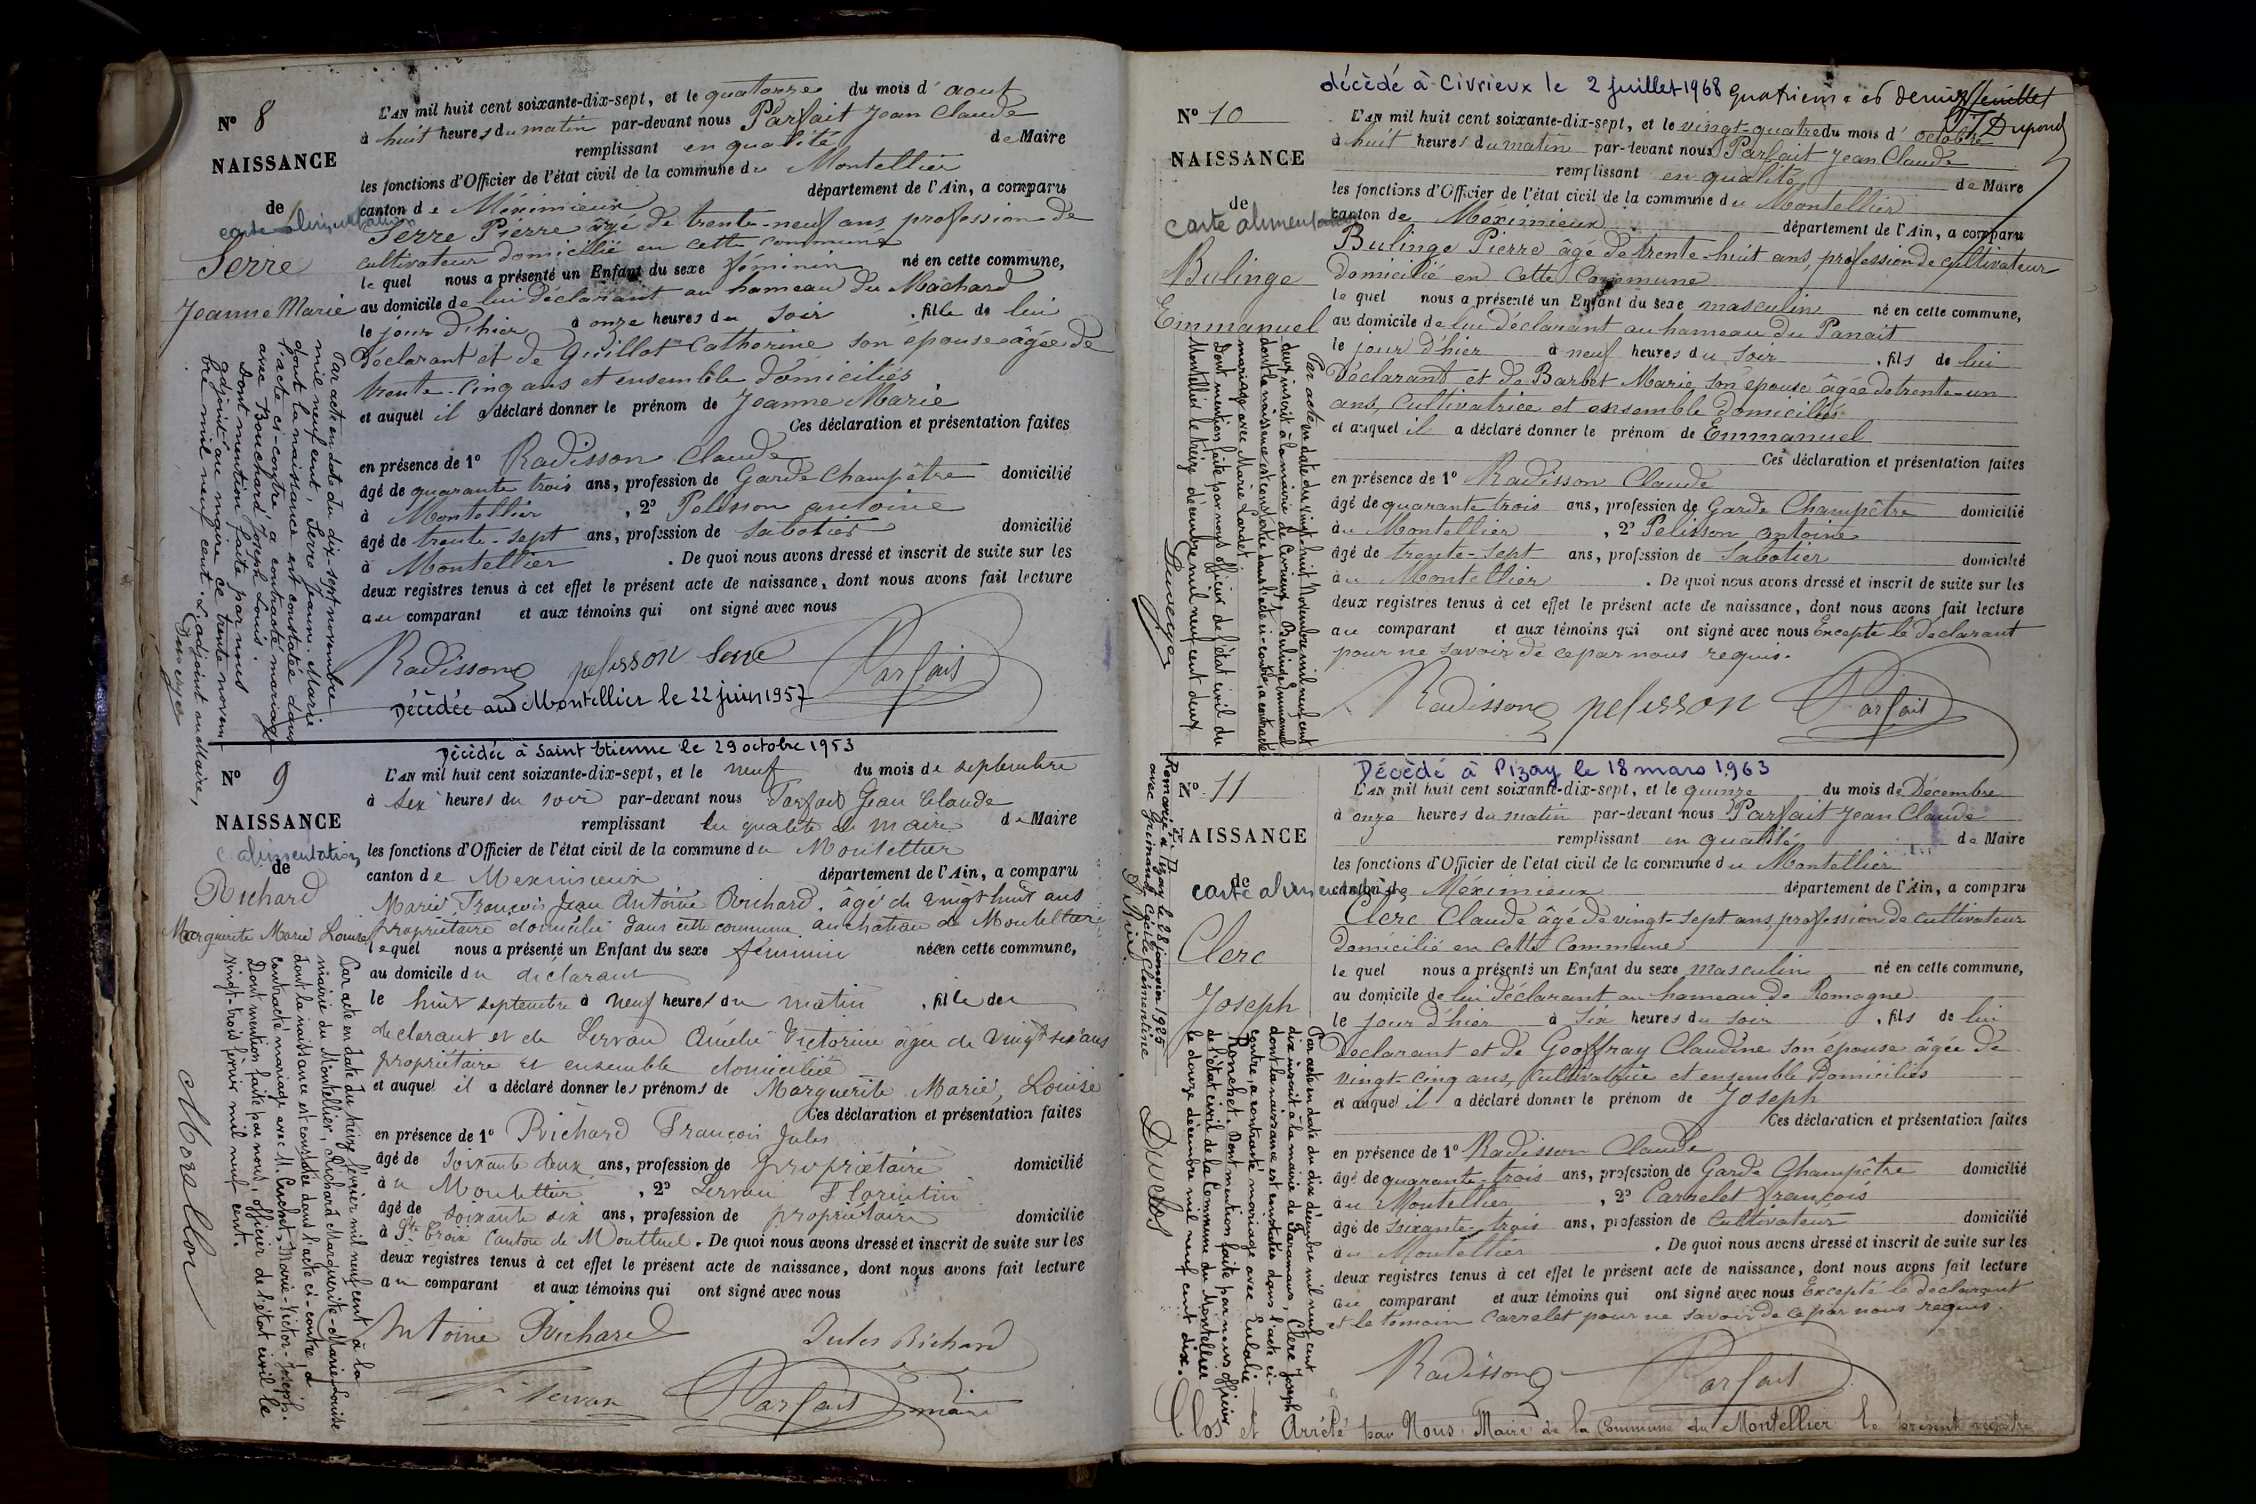 N° 8
NAISSANCE
de
carte alimentation
Serre
Jeanne Marie
L'AN mil huit cent soixante-dix-sept, et le quatorze du mois d'aout
à huit heures du matin par-devant nous Parfait Jean Claude
remplissant en qualité de Maire
les fonctions d'Officier de l'état civil de la commune du Montellier
canton de Méximieux département de l'Ain, a comparu
Serre Pierre âgé de trente-neuf ans, profession de
cultivateur domicilié en cette commune
lequel nous a présenté un Enfant du sexe féminin né en cette commune,
au domicile de lui déclarant au hameau du Machard
le jour d'hier à onze heures du soir, fille de lui
Déclarant et de Guillot Catherine son épouse âgée de
trente-cinq ans et ensemble domiciliés
et auquel il a déclaré donner le prénom de Jeanne Marie
Ces déclaration et présentation faites
en présence de 1° Radisson Claude
âgé de quarante trois ans, profession de Garde Champêtre domicilié
à Montellier, 2° Pelisson antoine
âgé de trente-sept ans, profession de Sabotier domicilié
à Montellier. De quoi nous avons dressé et inscrit de suite sur les
deux registres tenus à cet effet le présent acte de naissance, dont nous avons fait lecture
au comparant et aux témoins qui ont signé avec nous
Radisson pelisson Serre Parfait
Décédée au Montellier le 22 juin 1957
Par acte en date du dix-sept novembre
mil neuf cent, Serre Jeanne-Marie
dont la naissance est constatée dans
l'acte ci-contre a contracté mariage
avec Bouchard Joseph Louis.
Dont mention faite par nous
adjoint au maire ce trente novem
bre mil neuf cent. L'adjoint au Maire,
Duverger
N° 9
NAISSANCE
c. alimentation
de
Richard
Marguerite Marie Louise
Décédée à Saint Etienne le 29 octobre 1953
L'AN mil huit cent soixante-dix-sept, et le neuf du mois de septembre
à six heures du soir par-devant nous Parfait Jean Claude
remplissant en qualité de maire de Maire
les fonctions d'Officier de l'état civil de la commune du Montellier
canton de Meximieux département de l'Ain, a comparu
Marie, François Jean Antoine Richard, âgé de vingt huit ans
propriétaire domicilié dans cette commune au chateau de Montellier
lequel nous a présenté un Enfant du sexe féminin née en cette commune,
au domicile du déclarant
le huit septembre à neuf heures du matin, fille du
déclarant et de Servan Amélie Victorine âgée de vingt six ans
propriétaire et ensemble domiciliés
et auquel il a déclaré donner les prénoms de Marguerite Marie, Louise
Ces déclaration et présentation faites
en présence de 1° Richard François Jules
âgé de soixante deux ans, profession de propriétaire domicilié
au Montellier, 2° Servan Florentin
âgé de soixante six ans, profession de propriétaire domicilié
à Ste Croix Canton de Montluel. De quoi nous avons dressé et inscrit de suite sur les
deux registres tenus à cet effet le présent acte de naissance, dont nous avons fait lecture
au comparant et aux témoins qui ont signé avec nous
Antoine Richard Jules Richard
Servan Parfait maire
Par acte en date du treize février mil neuf cent à la
mairie du Montellier, Richard Marguerite-Marie-Louise
dont la naissance est constatée dans l'acte ci-contre, a
contracté mariage avec M. Marie-Victor-Joseph.
Dont mention faite par nous, officier de l'état civil le
vingt-trois février mil neuf cent.
N° 10
NAISSANCE
de
carte alimentation
Bulinge
Emmanuel
décèdé à Civrieux le 2 Juillet 1968
quatrieme et dernier feuillet
Dupond
L'AN mil huit cent soixante-dix-sept, et le vingt-quatre du mois d'octobre
à huit heures du matin par-devant nous Parfait Jean Claude
remplissant en qualité de Maire
les fonctions d'Officier de l'état civil de la commune du Montellier
canton de Méximieux département de l'Ain, a comparu
Bulinge Pierre âgé de trente-huit ans, profession de cultivateur
Domicilié en cette commune
lequel nous a présenté un Enfant du sexe masculin né en cette commune,
au domicile de lui déclarant au hameau du Panait
le jour d'hier à neuf heures du soir, fils de lui
Déclarant et de Barbet Marie, son épouse âgée de trente-un
ans, cultivatrice et ensemble domiciliés
et auquel il a déclaré donner le prénom de Emmanuel
Ces déclaration et présentation faites
en présence de 1° Radisson Claude
âgé de quarante trois ans, profession de Garde Champêtre domicilié
au Montellier, 2° Pelisson antoine
âgé de trente-sept ans, profession de Sabotier domicilié
au Montellier. De quoi nous avons dressé et inscrit de suite sur les
deux registres tenus à cet effet le présent acte de naissance, dont nous avons fait lecture
au comparant et aux témoins qui ont signé avec nous Excepté le déclarant
pour ne savoir de ce par nous requis.
Radisson pelisson Parfait
Par acte en date du vingt huit Novembre mil neuf cent
deux inscrit à la mairie de Civrieux, Bulinge Emmanuel
dont la naissance est constatée dans l'acte ci-contre, a contracté
mariage avec Marie Lardet.
Dont mention faite par nous officier de l'état civil du
Montellier le treize décembre mil neuf cent deux
Duverger
N° 11
NAISSANCE
de
carte alimentation
Clerc
Joseph
Décèdé à Pizay le 18 mars 1963
L'AN mil huit cent soixante-dix-sept, et le quinze du mois de Décembre
à onze heures du matin par-devant nous Parfait Jean Claude
remplissant en qualité de Maire
les fonctions d'Officier de l'état civil de la commune du Montellier
canton de Méximieux département de l'Ain, a comparu
Clerc Claude âgé de vingt-sept ans, profession de cultivateur
Domicilié en cette commune
lequel nous a présenté un Enfant du sexe masculin né en cette commune,
au domicile de lui déclarant au hameau de Romagne
le jour d'hier à six heures du soir, fils de lui
Déclarant et de Geoffray Claudine son épouse âgée de
vingt-cinq ans, cultivatrice et ensemble Domiciliés
et auquel il a déclaré donner le prénom de Joseph
Ces déclaration et présentation faites
en présence de 1° Radisson Claude
âgé de quarante-trois ans, profession de Garde Champêtre domicilié
au Montellier, 2° Carrelet françois
âgé de soixante-trois ans, profession de Cultivateur domicilié
au Montellier. De quoi nous avons dressé et inscrit de suite sur les
deux registres tenus à cet effet le présent acte de naissance, dont nous avons fait lecture
au comparant et aux témoins qui ont signé avec nous Excepté le déclarant
et le temoin Carrelet pour ne savoir de ce par nous requis
Radisson Parfait
Remarié à Pizay le 28 janvier 1925
avec Grimand Cécile Clémentine
Par acte en date du dix décembre mil neuf cent
dix inscrit à la mairie de Faramans, Clerc Joseph
dont la naissance est constatée dans l'acte ci-
contre, a contracté mariage avec Eulalie
Ronchet. Dont mention faite par nous officier
de l'état civil de la Commune du Montellier
le douze décembre mil neuf cent dix.
Clos et Arrêté par Nous Maire de la Commune du Montellier le present registre